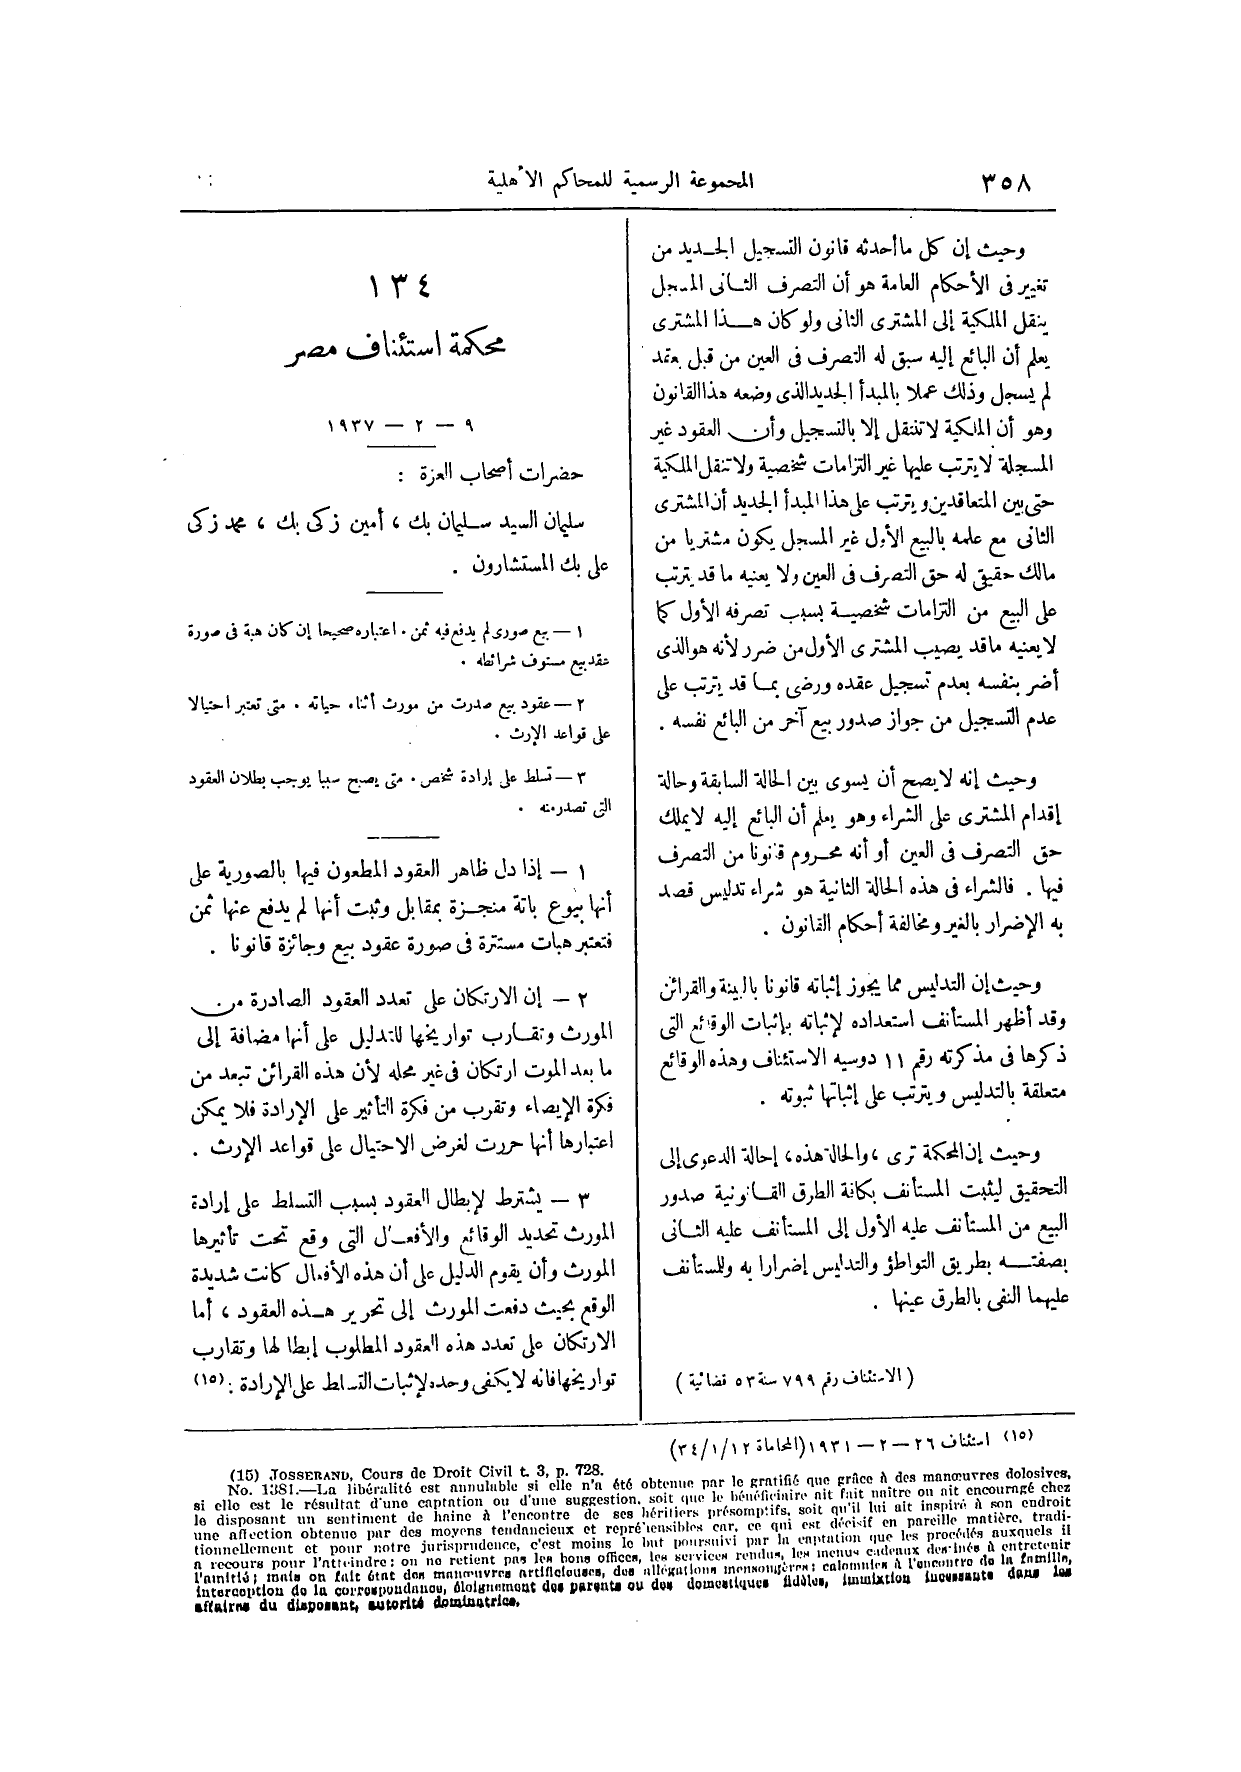 ٣٥٨
المجموعة الرسمية للمحاكم الأهلية
وحيث إن كل ما أحدثه قانون التسجيل الجديد من
تغيير فى الأحكام العامة هو أن التصرف الثانى المسجل
ينقل الملكية إلى المشترى الثانى ولو كان هذا المشترى
يعلم أن البائع إليه سبق له التصرف فى العين من قبل بعقد
لم يسجل وذلك عملا بالمبدأ الجديد الذى وضعه هذا القانون
وهو أن الملكية لا تنتقل إلا بالتسجيل وأن العقود غير
المسجلة لا يترتب عليها غير التزامات شخصية ولا تنقل الملكية
حتى بين المتعاقدين ويترتب على هذا المبدأ الجديد أن المشترى
الثانى مع علمه بالبيع الأول غير المسجل يكون مشتريا من
مالك حقيقى له حق التصرف فى العين ولا يعنيه ما قد يترتب
على البيع من التزامات شخصية بسبب تصرفه الأول كما
لا يعنيه ما قد يصيب المشترى الأول من ضرر لأنه هو الذى
أضر بنفسه بعدم تسجيل عقده ورضى بما قد يترتب على
عدم التسجيل من جواز صدور بيع آخر من البائع نفسه .
وحيث إنه لا يصح أن يسوى بين الحالة السابقة وحالة
إقدام المشترى على الشراء وهو يعلم أن البائع إليه لا يملك
حق التصرف فى العين أو أنه محروم قانونا من التصرف
فيها . فالشراء فى هذه الحالة الثانية هو شراء تدليس قصد
به الإضرار بالغير ومخالفة أحكام القانون .
وحيث إن التدليس مما يجوز إثباته قانونا بالبينة والقرائن
وقد أظهر المستأنف استعداده لإثباته بإثبات الوقائع التى
ذكرها فى مذكرته رقم ١١ دوسيه الاستئناف وهذه الوقائع
متعلقة بالتدليس ويترتب على إثباتها ثبوته .
وحيث إن المحكة ترى ، والحالة هذه ، إحالة الدعوى إلى
التحقيق ليثبت المستأنف بكافة الطرق القانونية صدور
البيع من المستأنف عليه الأول إلى المستأنف عليه الثانى
بصفته بطريق التواطؤ والتدليس إضرارا به وللمستأنف
عليهما النفى بالطرق عينها .
( الاستئناف رقم ٧٩٩ سنة ٥٣ قضائية )
١٣٤
محكمة استئناف مصر
٩ — ٢ — ١٩٣٧
حضرات أصحاب العزة :
سليمان السيد سليمان بك ، أمين زكى بك ، محمد زكى
على بك المستشارون .
١ — بيع صورى لم يدفع فيه ثمن . اعتباره صحيحا إن كان هبة فى صورة
عقد بيع مستوف شرائطه .
٢ — عقود بيع صدرت من مورث أثناء حياته . متى تعتبر احتيالا
على قواعد الإرث .
٣ — تسلط على إرادة شخص . متى يصبح سببا يوجب بطلان العقود
التى تصدر منه .
١ — إذا دل ظاهر العقود المطعون فيها بالصورية على
أنها بيوع باتة منجزة بمقابل وثبت أنها لم يدفع عنها ثمن
فتعتبر هبات مستترة فى صورة عقود بيع وجائزة قانونا .
٢ — إن الارتكان على تعدد العقود الصادرة من
المورث وتقارب تواريخها للتدليل على أنها مضافة إلى
ما بعد الموت ارتكان فى غير محله لأن هذه القرائن تبعد من
فكرة الإيصاء وتقرب من فكرة التأثير على الإرادة فلا يمكن
اعتبارها أنها حررت لغرض الاحتيال على قواعد الإرث .
٣ — يشترط لإبطال العقود بسبب التسلط على إرادة
المورث تحديد الوقائع والأفعال التى وقع تحت تأثيرها
المورث وأن يقوم الدليل على أن هذه الأفعال كانت شديدة
الوقع بحيث دفعت المورث إلى تحرير هذه العقود ، أما
الارتكان على تعدد هذه العقود المطلوب إبطالها وتقارب
تواريخها فانه لا يكفى وحده لإثبات التسلط على الإرادة : (١٥)
(١٥) استئناف ٢٦ — ٢ — ١٩٣١ (المحاماة ٣٤/١/١٢)
(15) JOSSERAND, Cours de Droit Civil t. 3, p. 728.
No. 1381.—La libéralité est annulable si elle n'a été obtenue par le gratifié que grâce à des manœuvres dolosives,
si elle est le résultat d'une captation ou d'une suggestion, soit que le bénéficiaire ait fait naître ou ait encouragé chez
le disposant un sentiment de haine à l'encontre de ses héritiers présomptifs, soit qu'il lui ait inspiré à son endroit
une affection obtenue par des moyens tendancieux et repréhensibles car, ce qui est décisif en pareille matière, tradi-
tionnellement et pour notre jurisprudence, c'est moins le but poursuivi par la captation que les procédés auxquels il
a recours pour l'atteindre : on ne retient pas les bons offices, les services rendus, les menus cadeaux destinés à entretenir
l'amitié ; mais on fait état des manœuvres artificieuses, des allégations mensongères ; calomnies à l'encontre de la famille,
interception de la correspondance, éloignement des parents ou des domestiques fidèles, immixtion incessante dans les
affaires du disposant, autorité dominatrice.